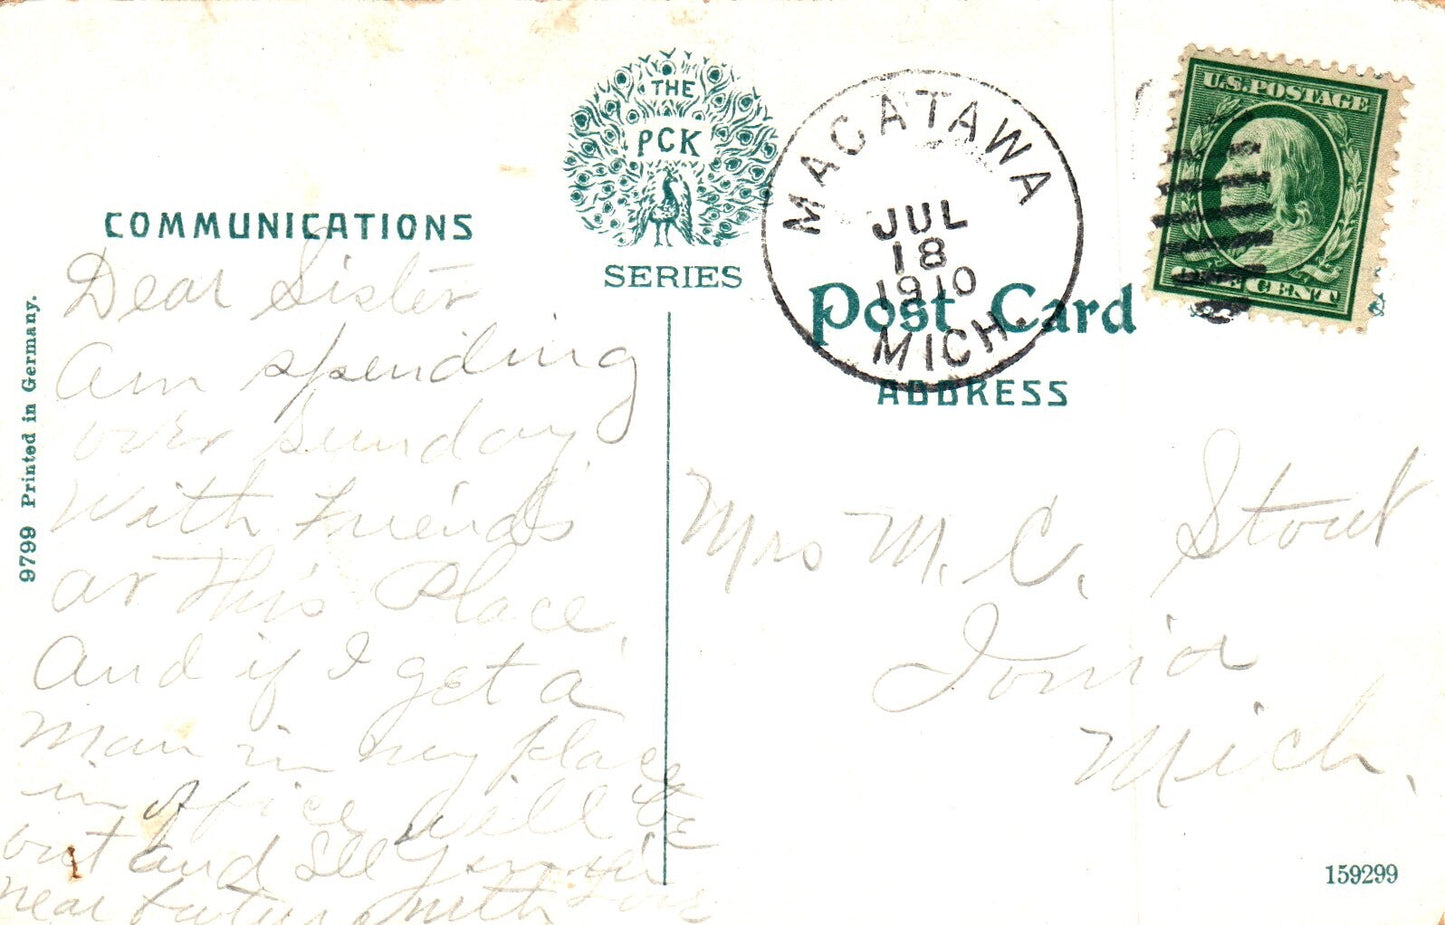 THE
PCK
SERIES
COMMUNICATIONS
9799 Printed in Germany.
MACATAWA
JUL
18
1910
MICH.
U.S. POSTAGE
CENT
Post Card
ADDRESS
Dear Sister
Am spending
over Sunday
With Friends
at This Place.
And if I get a
Man in my place
in office will be
out and see you in
near future With Love
Mrs M. C. Stout
Ionia
Mich.
159299